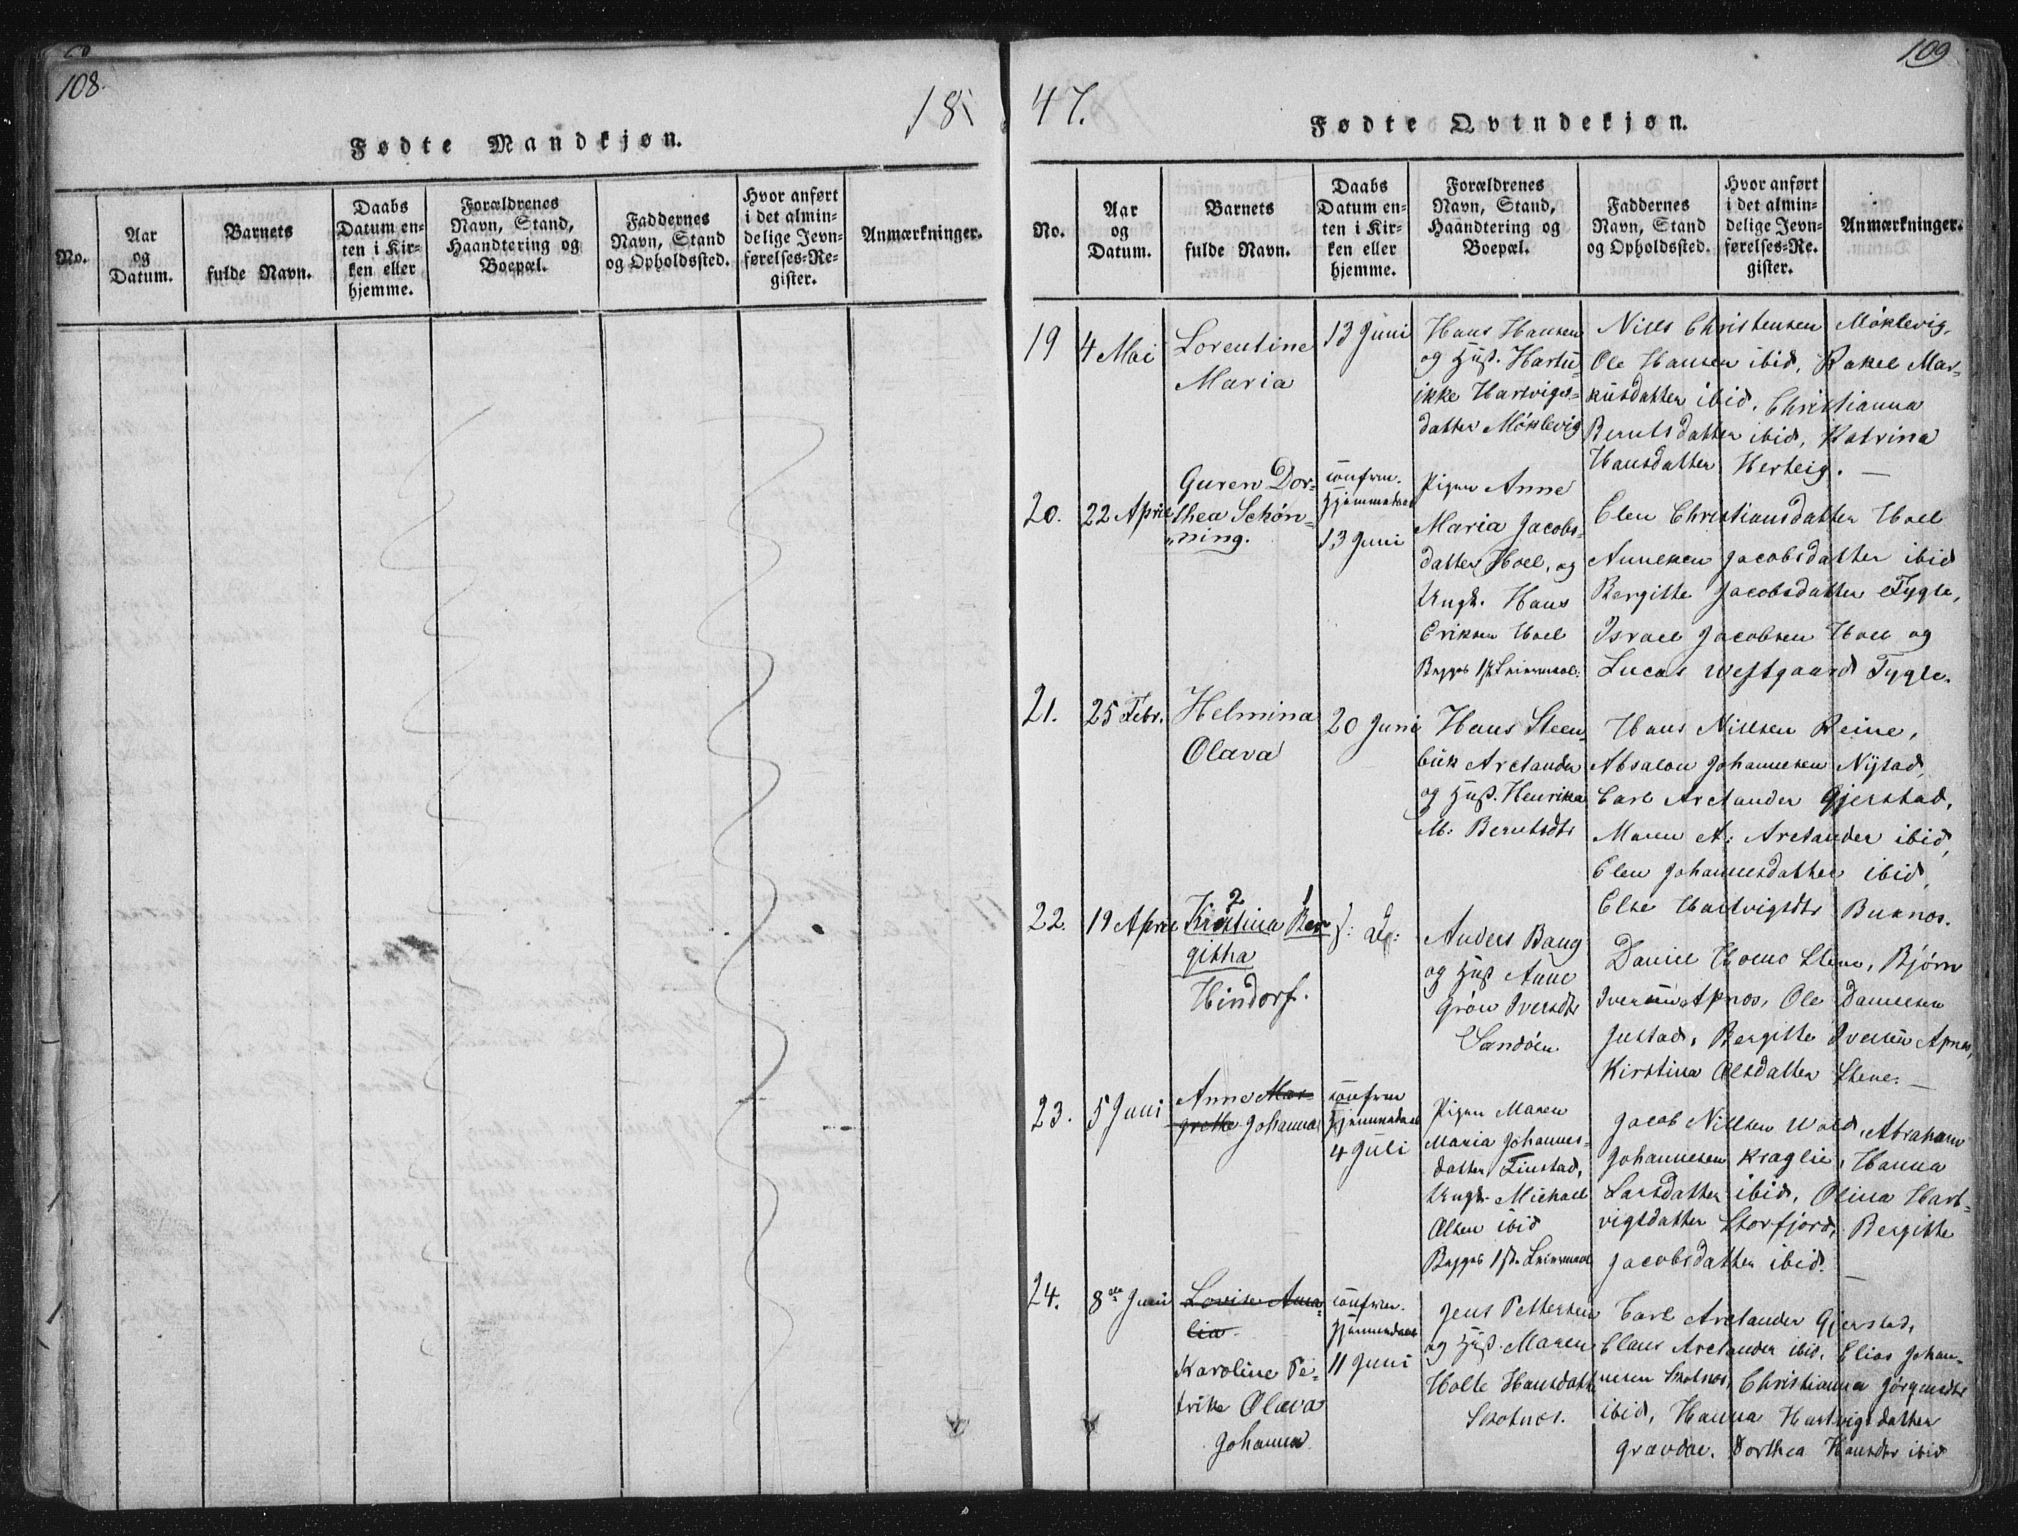 108.
18
Fødte Mandkjøn.
No.
Aar
og
Datum.
Barnets
fulde Navn.
Daabs
Datum en-
ten i Kir-
ken eller
hjemme.
Forældrenes
Navn, Stand,
Haandtering og
Boepæl.
Faddernes
Navn, Stand
og Opholdssted.
Hvor anført
i det almin-
delige Jevn-
førelses-Re-
gister.
Anmærkninger.
109
47.
Fødte Qvindekjøn.
No.
Aar
og
Datum.
Barnets
fulde Navn.
Daabs
Datum en-
ten i Kir-
ken eller
hjemme.
Forældrenes
Navn, Stand,
Haandtering og
Boepæl.
Faddernes
Navn, Stand
og Opholdssted.
Hvor anført
i det almin-
delige Jevn-
førelses-Re-
gister.
Anmærkninger.
19
4 Mai
Lorentine
Maria
13 Juni
Hans Hansen
og Huß. Hartu-
ikke Hartvigs-
datter Møklevig
Niels Christensen Møklevig,
Ole Hansen ibid, Rakel Mar-
kusdatter ibid, Christianna
Berntsdatter ibid, Katrina
Hansdatter Herteig. —
20.
22 April
Guren Dor-
thea Schøn-
ning.
confrm.
Hjemmedaab
13 Juni
Pigen Anne
Maria Jacobs-
datter Hoel, og
Ungk. Hans
Eriksen Hoel
Begges 1ste Leiermaal.
Elen Christiansdatter Hoel
Anneken Jacobsdatter ibid
Bergitte Jacobsdatter Tygle,
Israel Jacobsen Hoel og
Lucas Westgaard Tygle.
21.
25 Febr.
Helmina
Olava
20 Juni
Hans Steen-
buk Arctander
og Huß. Henrika
M: Berntsdtr
Hans Nielsen Reine,
Absalon Johannesen Nystad,
Carl Arctander Gjerstad,
Maren A: Arctander ibid,
Elen Johannesdatter ibid,
Else Hartvigsdtr Buknos.
22.
19 April
2 1
Kristina Ber-
githa
Hindorf.
Anders Baug
og Huß Anne
Grøn Iversdtr
Sandøen
Daniel Hoens Stene, Bjørn
Iversen Apnos, Ole Danielsen
Justad, Bergitte Iversen Apnos,
Kirstina Olsdatter Stene. —
23.
5 Juni
Anne Mar-
grethe Johanna
confrm
Hjemmedaab
4 Juli
Pigen Maren
Maria Johannes-
datter Finstad,
Ungk. Michael
Olsen ibid
Begges 1ste Leiermaal
Jacob Nielsen Wold, Abraham
Johannesen Kraglie, Hanna
Larsdatter ibid, Olina Hart-
vigsdatter Storfjord, Bergitte
Jacobsdatter ibid. —
24.
8de Juni
Lovise Ama-
lia.
Karoline Pe-
trike Olava
Johanna
confrm.
Hjemmedaab
11 Juni
Jens Pettersen
og Huß. Maren
Holte Hansdatter
Skotnos.
Carl Arctander Gjerstad,
Claus Arctander ibid, Elias Johan-
nesen Skotnos, Christianna Jørgensdtr
ibid, Hanna Hartvigsdatter
Gravdae. Dorthea Hansdtr ibid